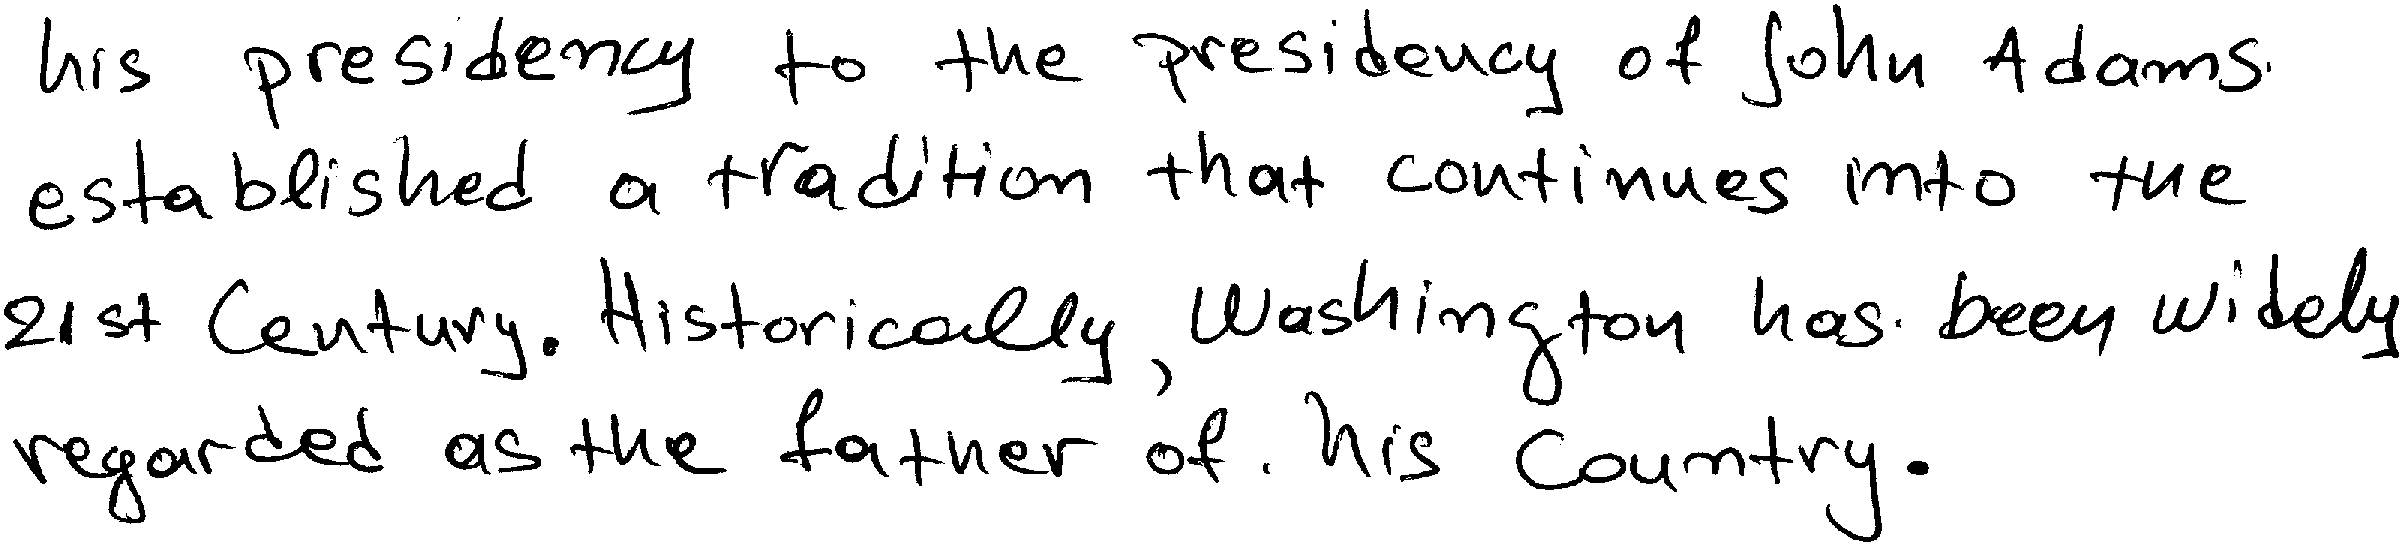 his presidency to the presidency of John Adams
established a tradition that continues into the
21st Century. Historically, Washington has been widely
regarded as the father of his Country.